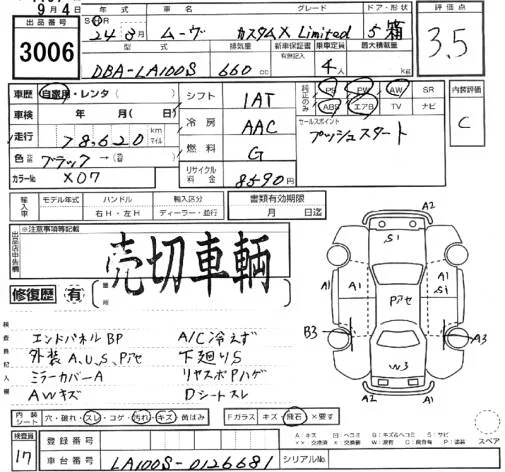 9月4日
出品番号 年式 車名 グレード ドア・形状 評価点
3006 24年8月 ムーヴ カスタムX Limited 5 箱 3.5
型式 排気量 新車保証書 乗車定員 最大積載量
有無記入
DBA-LA100S 660cc 4人 kg
車歴 自家用・レンタ( ) シフト 1AT 純正のみ PS PW AW SR 内装評価
車検 年 月( 日) ABS エアB TV ナビ C
冷房 AAC セールスポイント
走行 78,620 km マイル プッシュスタート
燃料 G
色 ブラック
カラーNo X07 リサイクル料金 8590円
輸入車 モデル年式 ハンドル 輸入区分 書類有効期限
右H・左H ディーラー・並行 月 日迄
出品店申告欄 ※注意事項等記載
売切車輌
修復歴 有 箇所
検査員記入欄
エンドパネルBP A/C冷えず
外装A,U,S,Pアセ 下廻りS
ミラーカバーA リヤスポPハゲ
AWキズ Dシートスレ
A2
S1
A1 A1 A1
S1
Pアセ
B3 A3
W3
A2
A1
内装シート 穴・破れ・スレ・コゲ・汚れ・キズ・黄ばみ Fガラス キズ・飛石 ×要す
スペア
検査員 17 登録番号
車台番号 LA100S-0126681 シリアルNo.